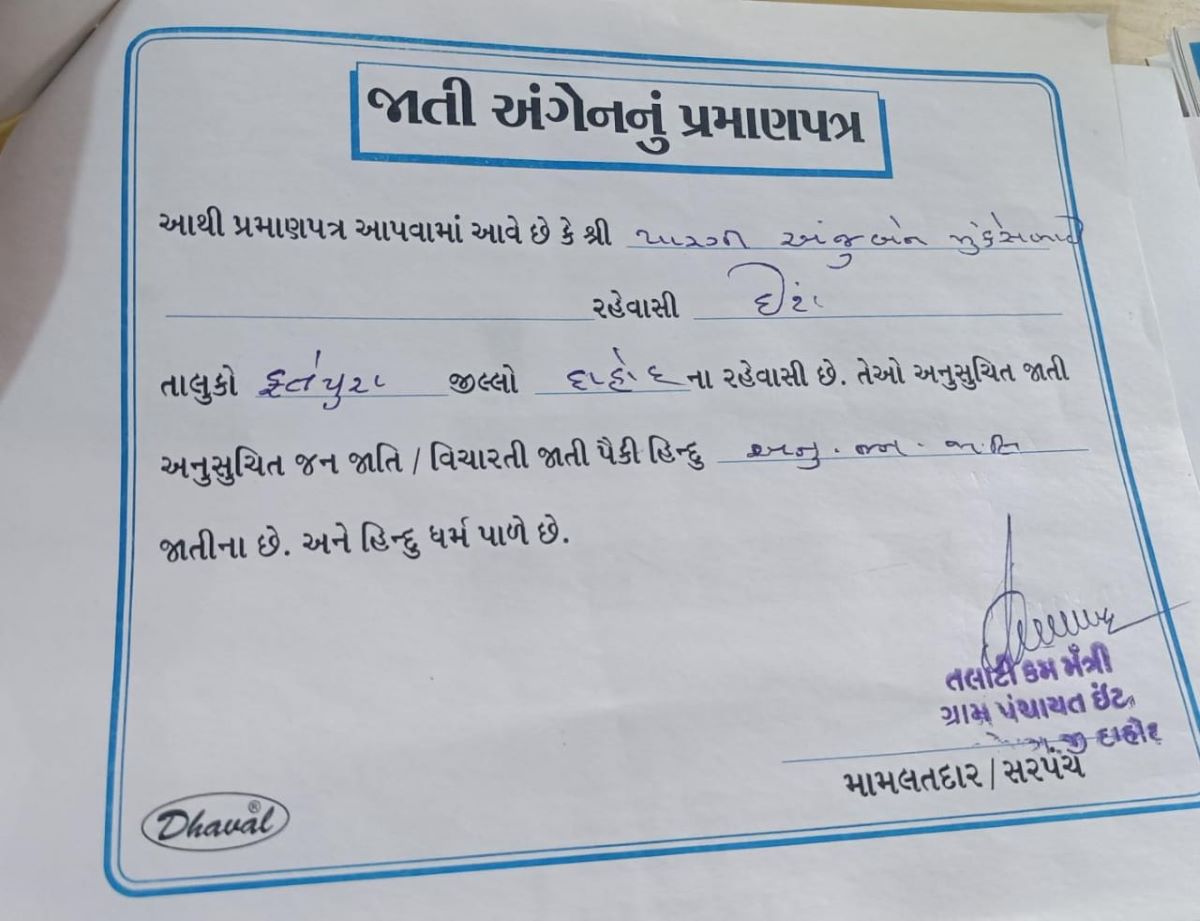 જાતી અંગેનનું પ્રમાણપત્ર
આથી પ્રમાણપત્ર આપવામાં આવે છે કે શ્રી પારગી અંજુબેન મુકેસભાઈ
રહેવાસી ઈટા
તાલુકો ફતેપુરા જીલ્લો દાહોદ ના રહેવાસી છે. તેઓ અનુસુચિત જાતી
અનુસુચિત જન જાતિ / વિચારતી જાતી પૈકી હિન્દુ અનુ. જન. જાતિ
જાતીના છે. અને હિન્દુ ધર્મ પાળે છે.
તલાટી કમ મંત્રી
ગ્રામ પંચાયત ઈટા
જી દાહોદ
મામલતદાર / સરપંચ
Dhaval®